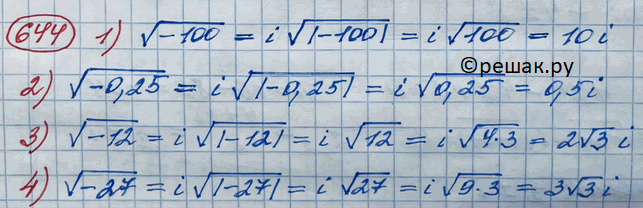 644 1) √-100 = i √|-100| = i √100 = 10 i
©решак.ру
2) √-0,25 = i √|-0,25| = i √0,25 = 0,5i
3) √-12 = i √|-12| = i √12 = i √4·3 = 2√3 i
4) √-27 = i √|-27| = i √27 = i √9·3 = 3√3 i